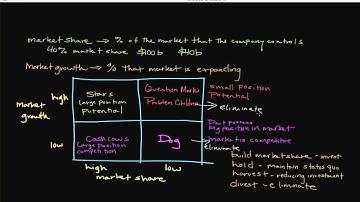 market share → % of the market that the company controls
40% market share $100b $40b
Market growth → % that market is expanding
market growth
high
Stars
Large position
Potential
Question Marks
Problem Children
small position
Potential
eliminate
low
Cash cows
Large position
competition
Dog
position in market
market is competitive
eliminate
high
low
market share
build market share - invest
hold - maintain status quo
harvest - reducing investment
divest - eliminate